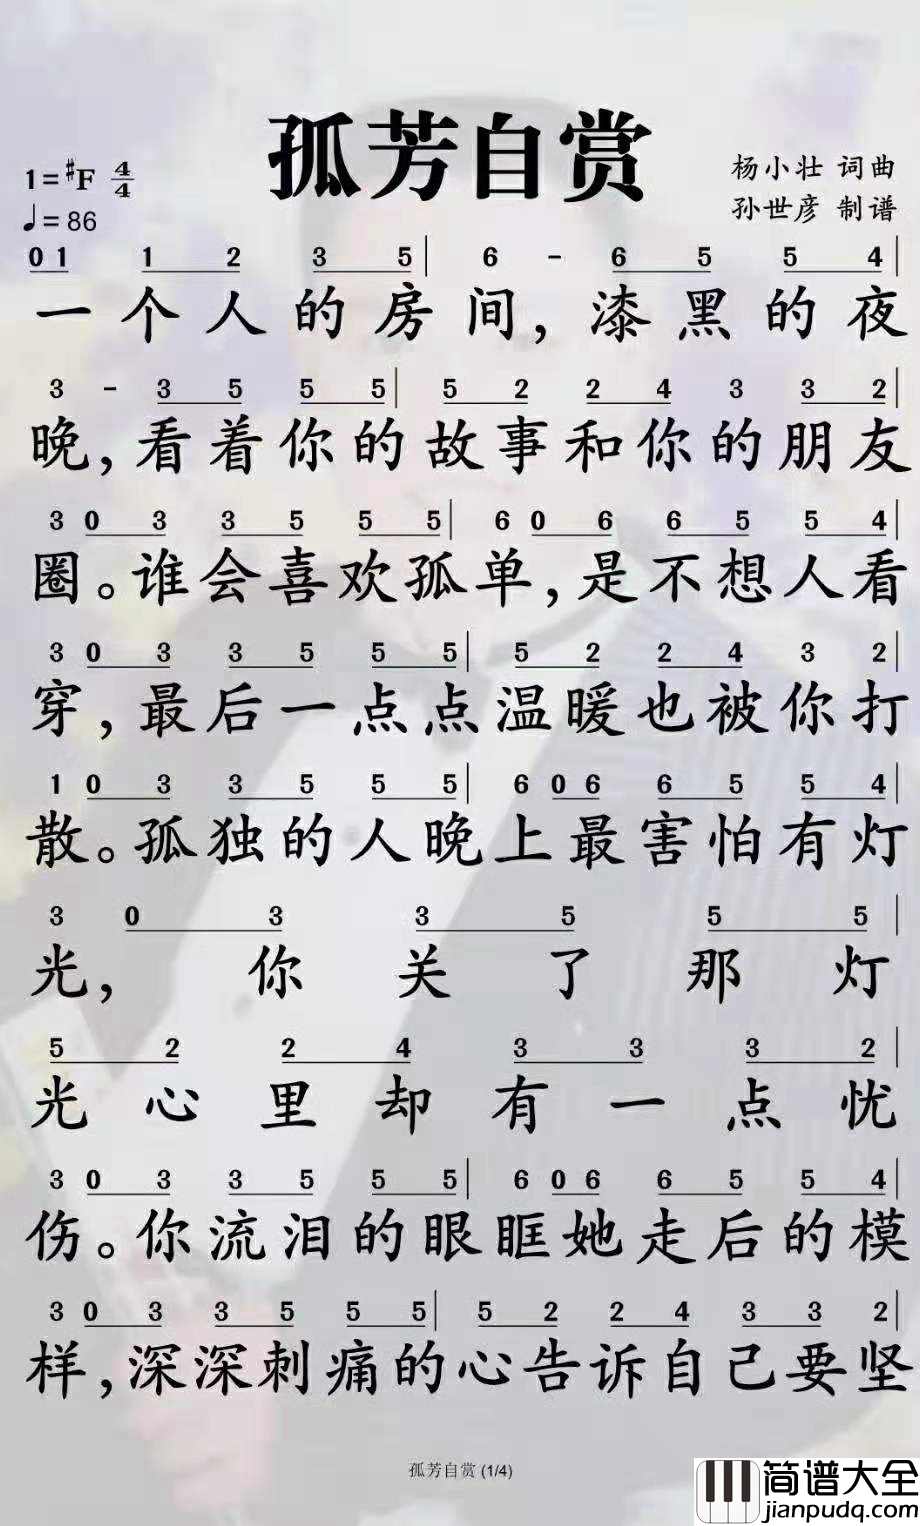 孤芳自赏
1=#F 4/4
♩=86
杨小壮 词曲
孙世彦 制谱
0 1 1 2 3 5 | 6 - 6 5 5 4 |
一个人的房间,漆黑的夜
3 - 3 5 5 5 | 5 2 2 4 3 3 2 |
晚,看着你的故事和你的朋友
3 0 3 3 5 5 5 | 6 0 6 6 5 5 4 |
圈。谁会喜欢孤单,是不想人看
3 0 3 3 5 5 5 | 5 2 2 4 3 2 |
穿,最后一点点温暖也被你打
1 0 3 3 5 5 5 | 6 0 6 6 5 5 4 |
散。孤独的人晚上最害怕有灯
3 0 3 3 5 5 5 |
光,你关了那灯
5 2 2 4 3 3 3 2 |
光心里却有一点忧
3 0 3 3 5 5 5 | 6 0 6 6 5 5 4 |
伤。你流泪的眼眶她走后的模
3 0 3 3 5 5 5 | 5 2 2 4 3 3 2 |
样,深深刺痛的心告诉自己要坚
孤芳自赏 (1/4)
简谱大全
jianpudq.com